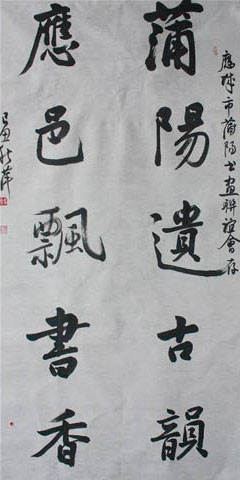 應城市蒲陽書畫聯誼會存
蒲陽遺古韻
應邑飄書香